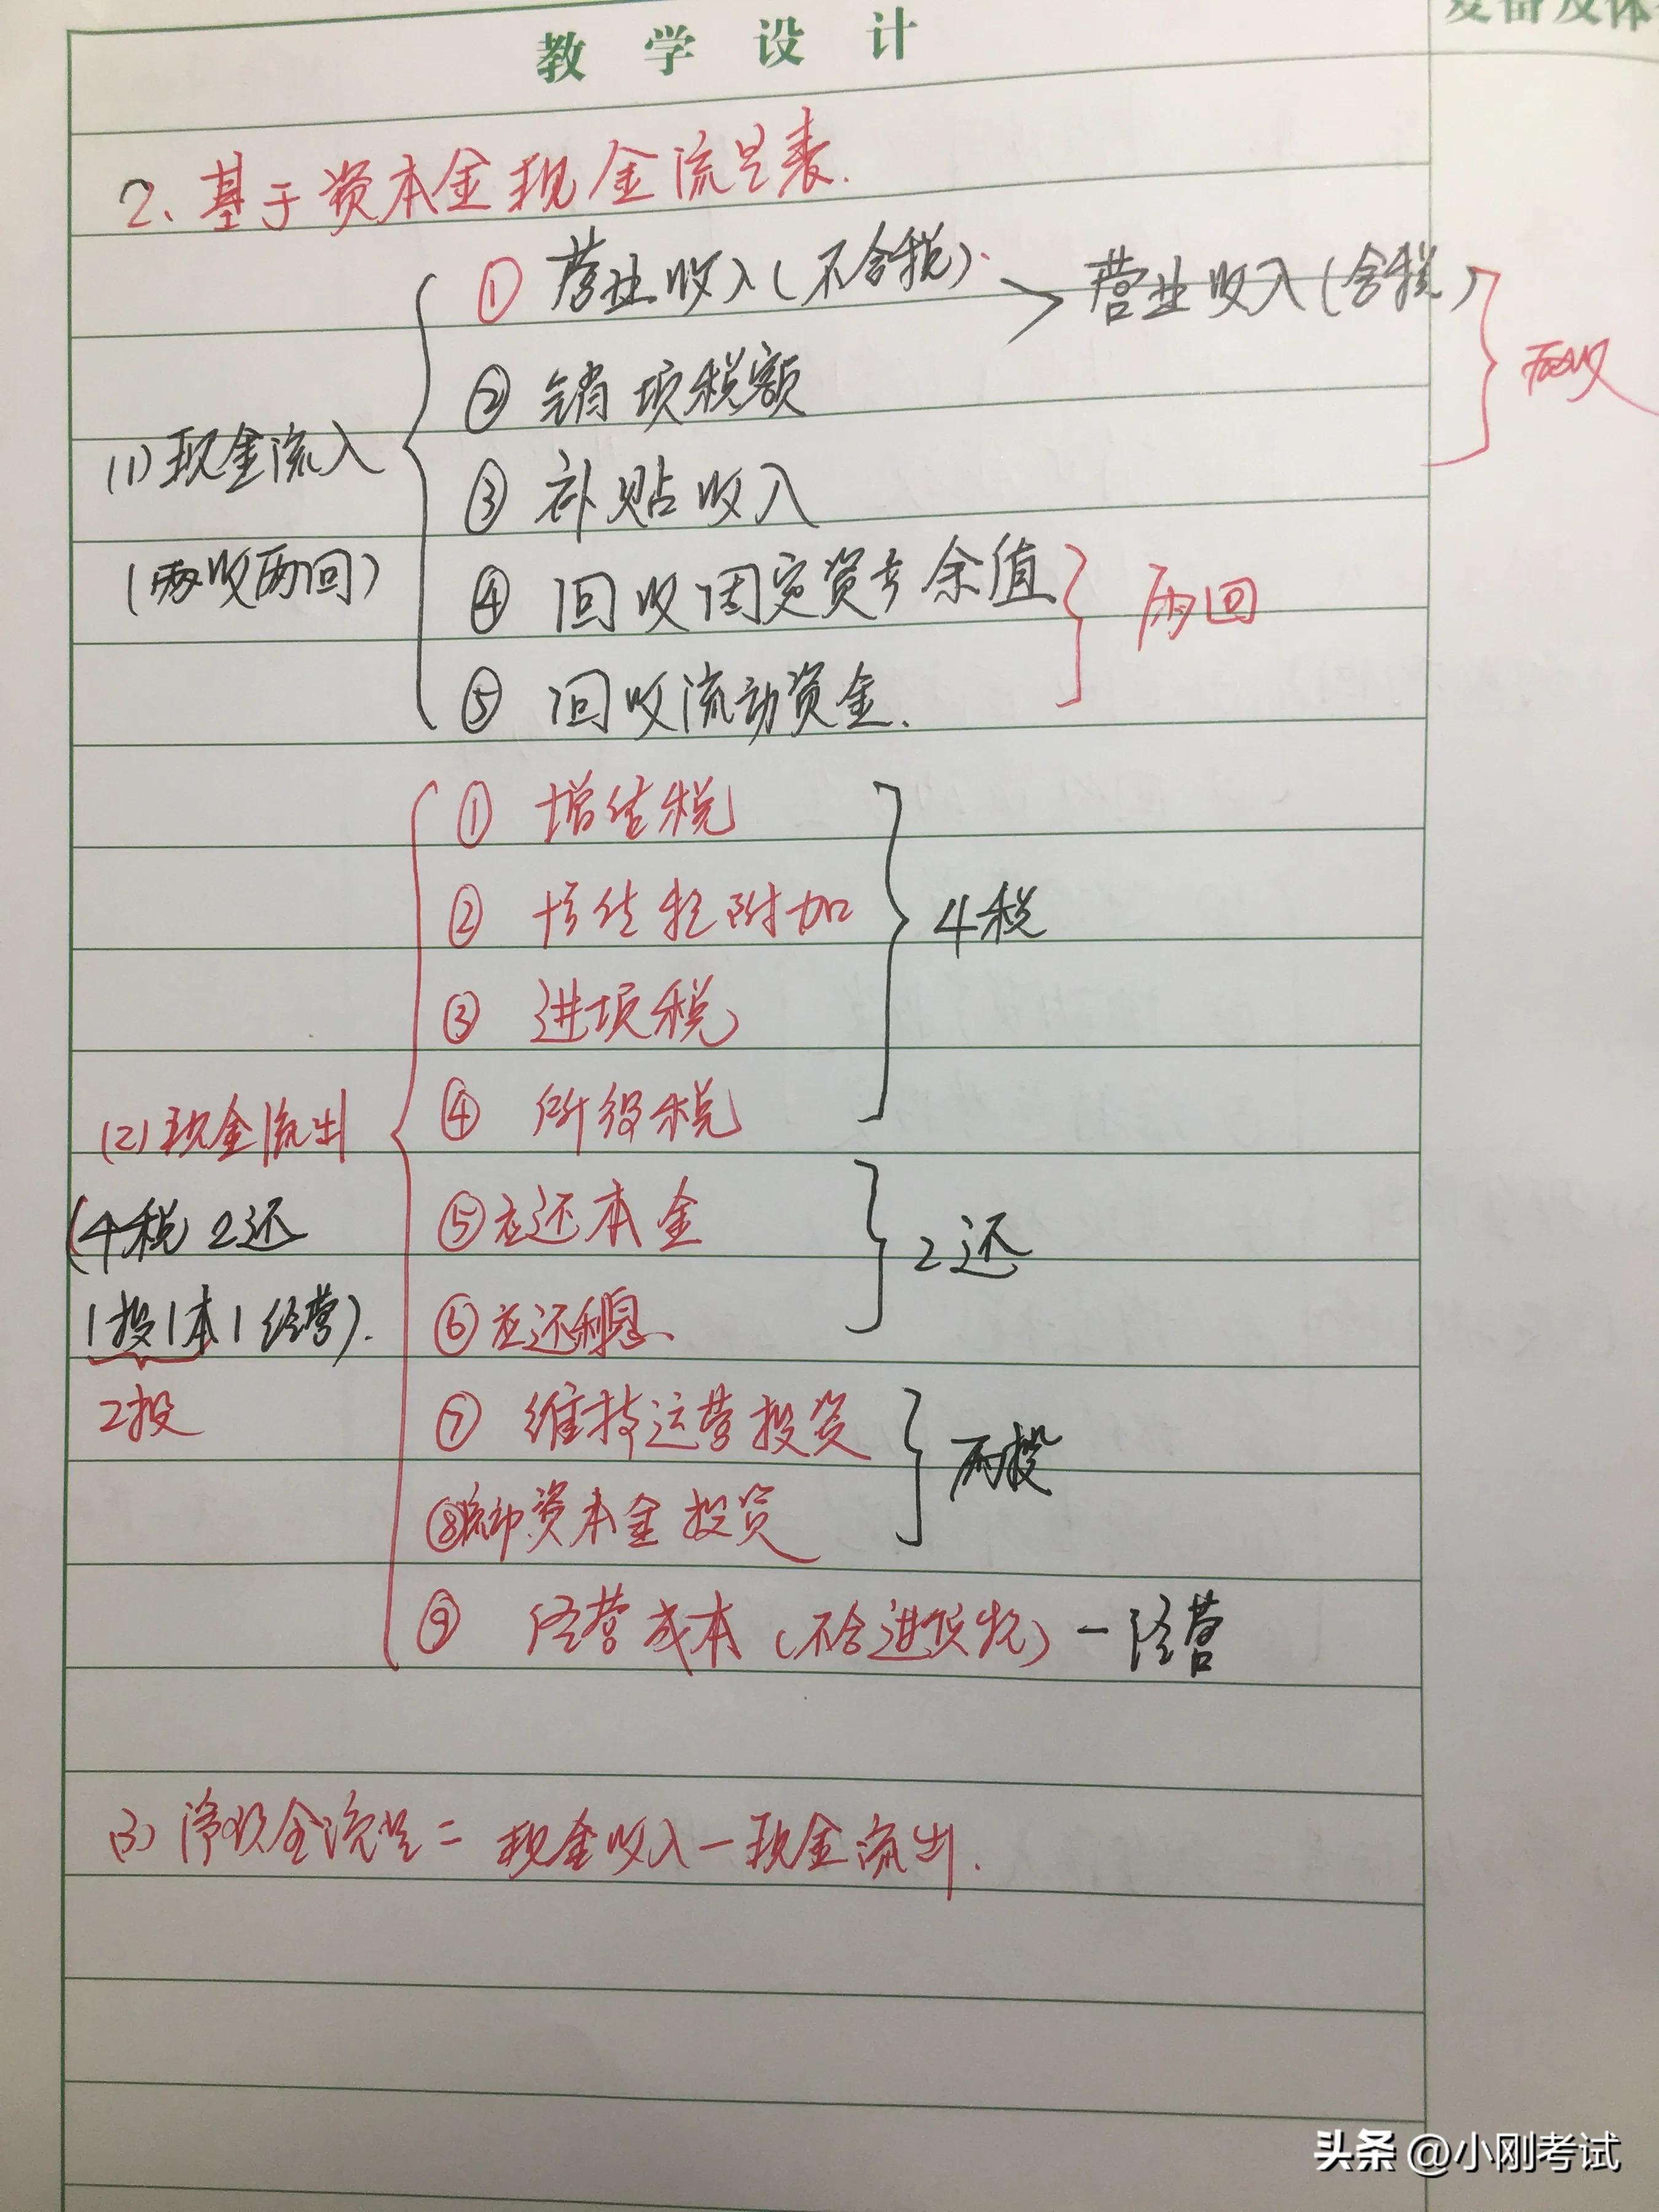 教学设计
2、基于资本金现金流量表.
① 营业收入(不含税) > 营业收入(含税)
② 销项税额
两收
(1)现金流入
③ 补贴收入
(两收两回)
④ 回收固定资产余值
两回
⑤ 回收流动资金.
① 增值税
② 增值税附加
4税
③ 进项税
④ 所得税
(2)现金流出
(4税 2还
⑤应还本金
2还
1投1本1经营).
⑥应还利息
2投
⑦ 维持运营投资
两投
⑧ 资本金投资
⑨ 经营成本(不含进项税) 一经营
(3) 净现金流量 = 现金收入-现金流出.
头条 @小刚考试